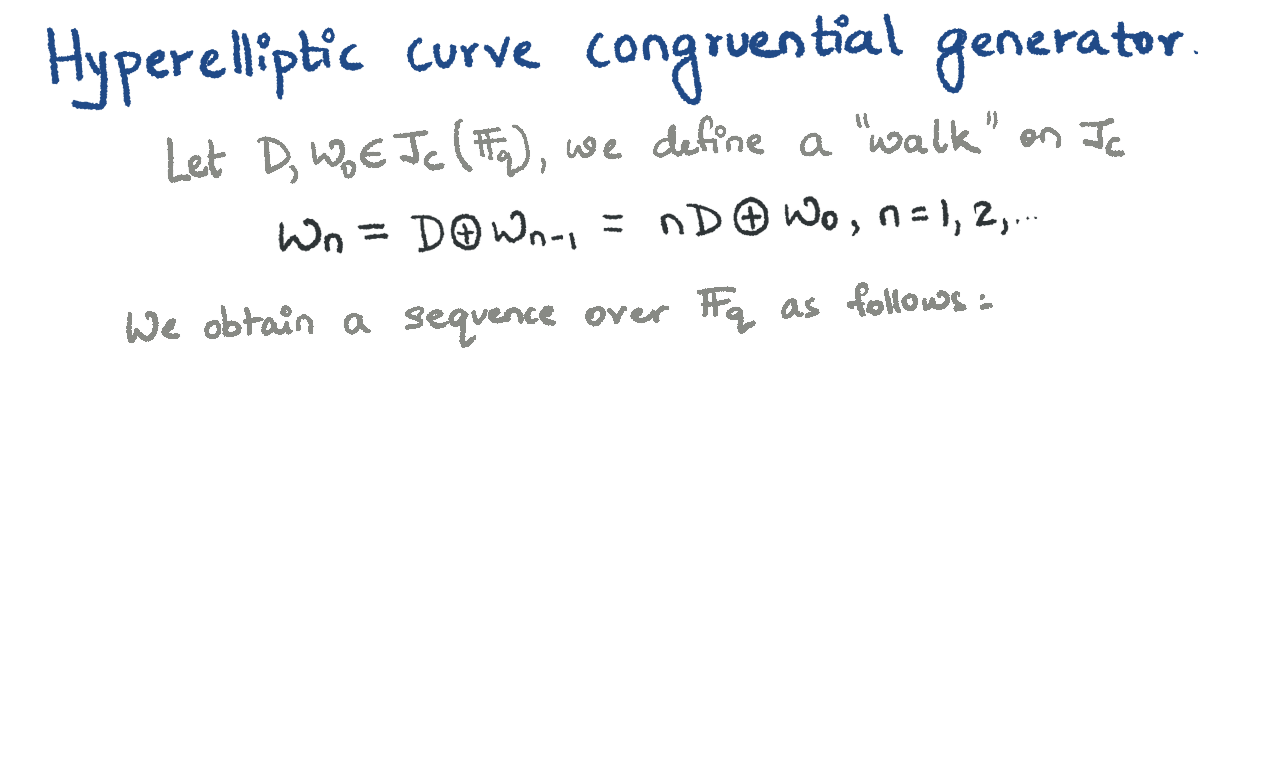 Hyperelliptic curve congruential generator.
Let D, W₀ ∈ J_C(𝔽_q), we define a "walk" on J_C
W_n = D ⊕ W_{n-1} = nD ⊕ W₀, n = 1, 2, ...
We obtain a sequence over 𝔽_q as follows: